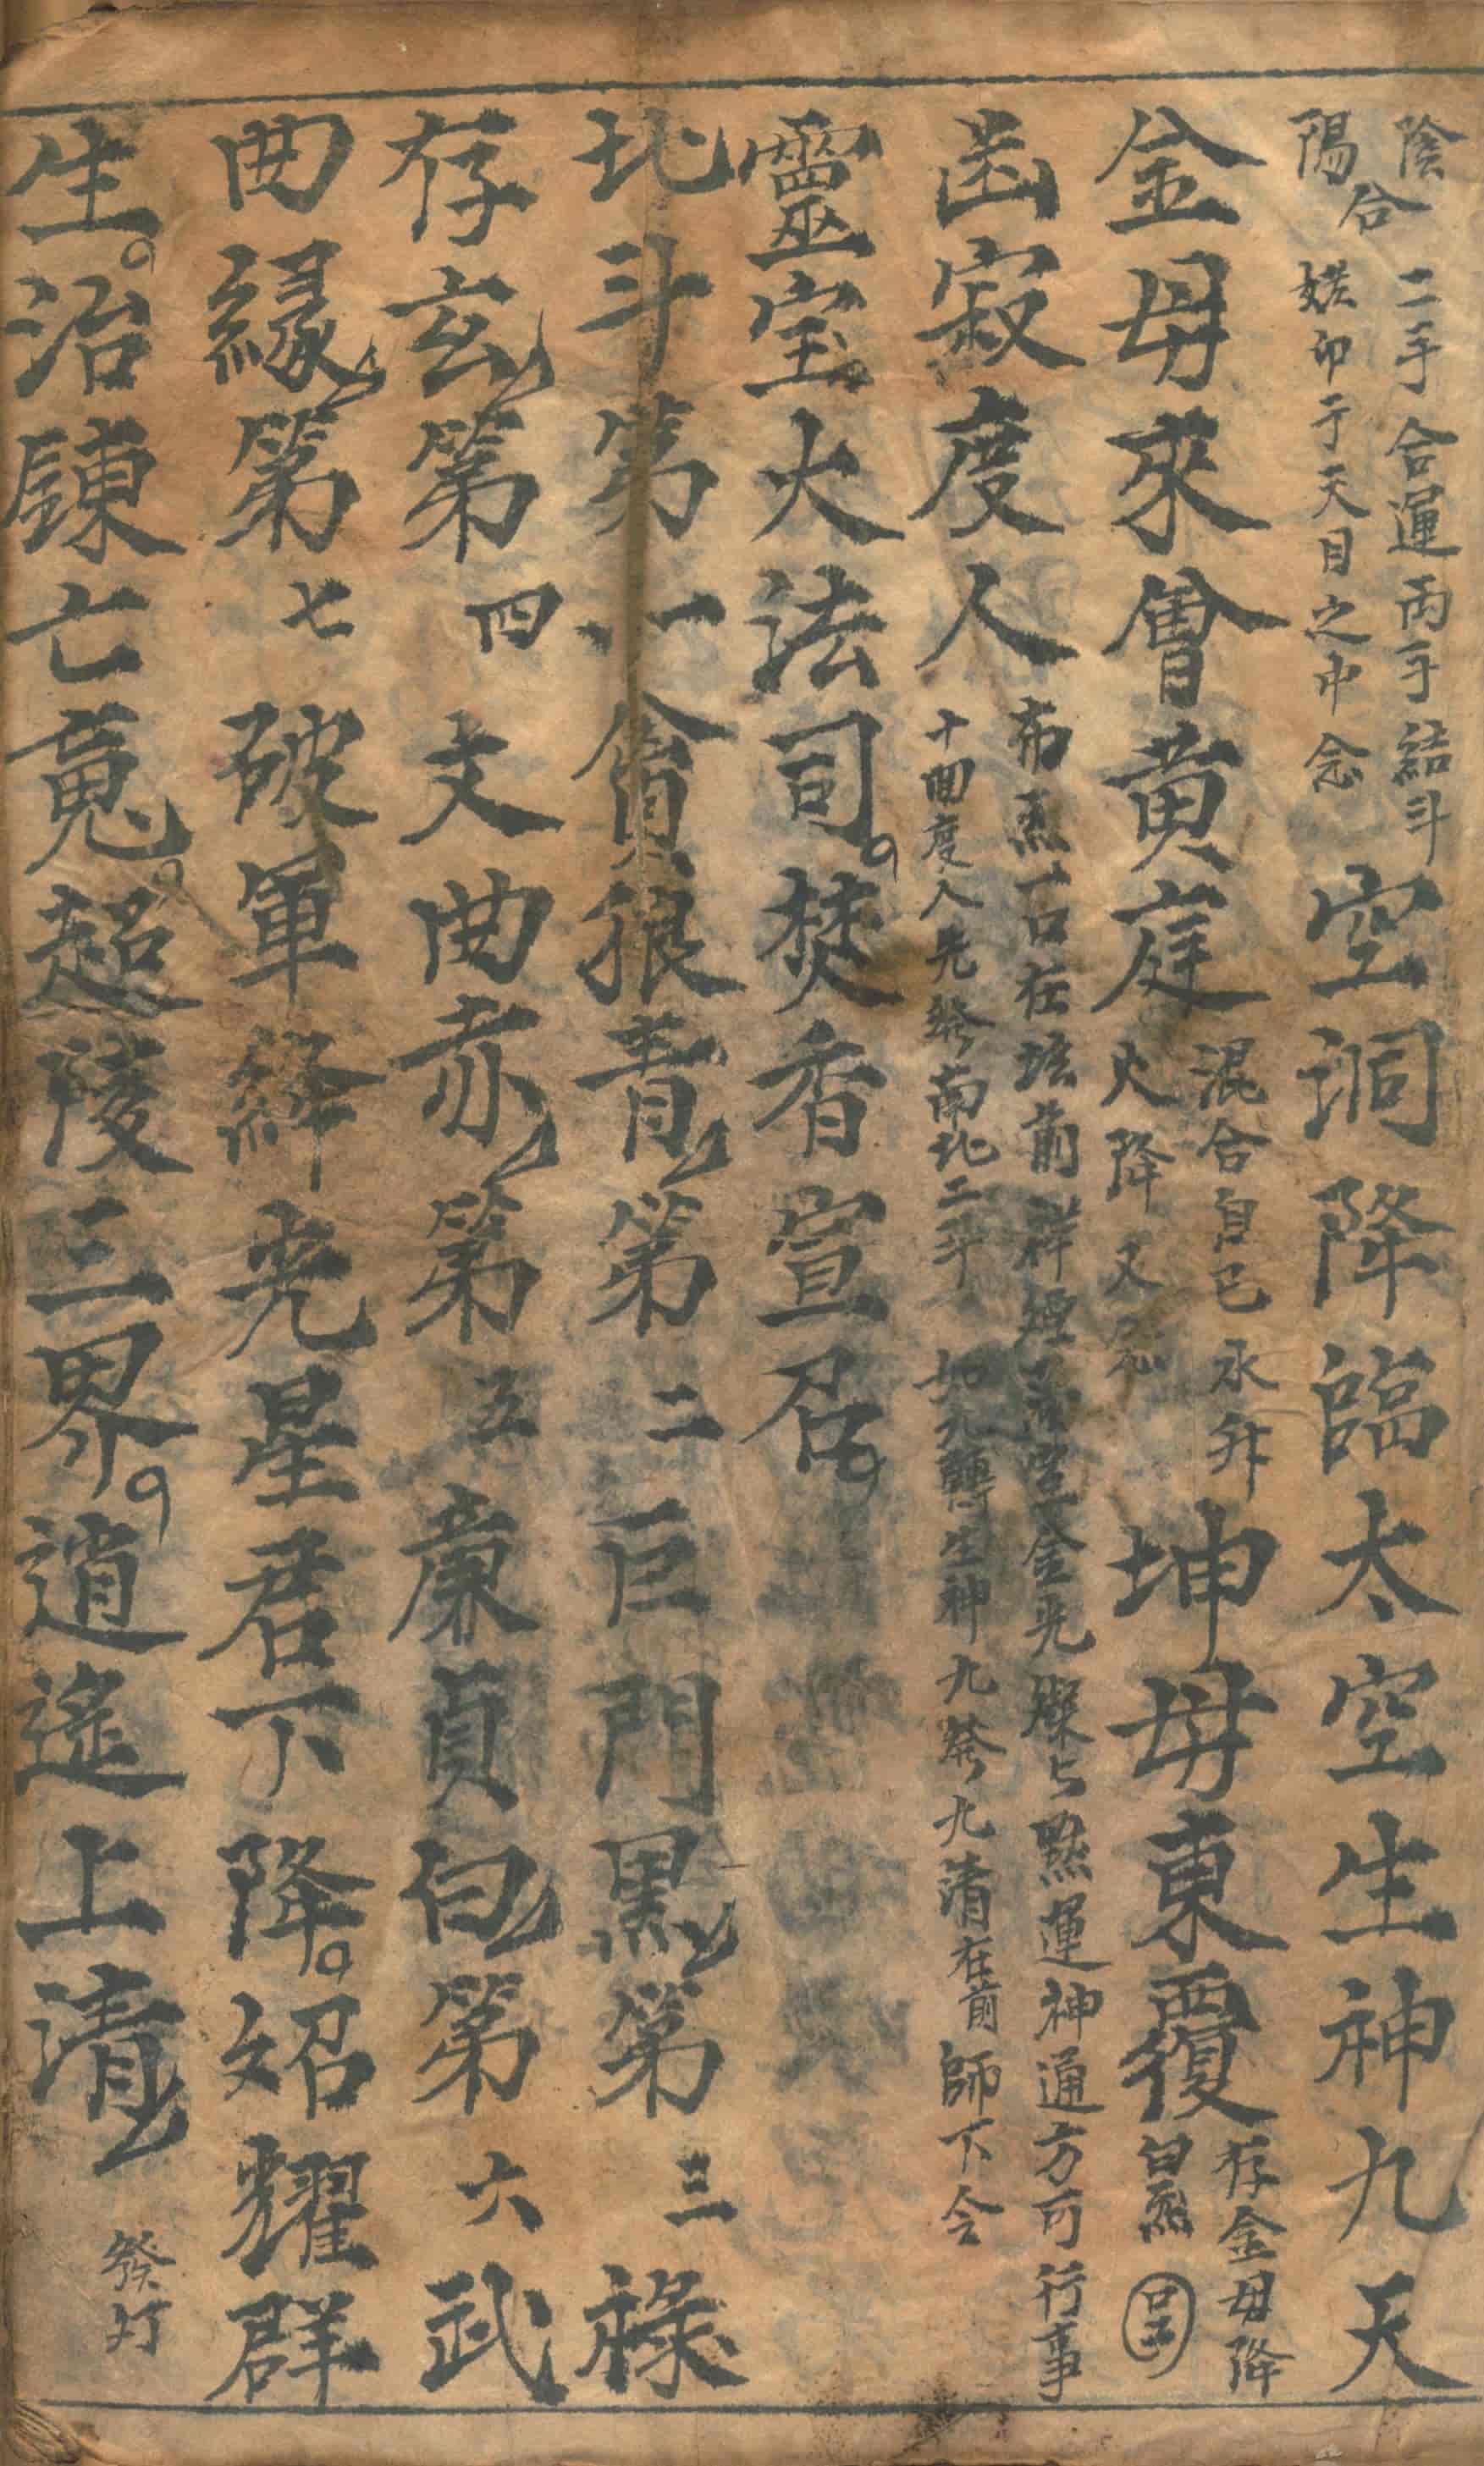 陰陽合 二手合運両手結斗 娞印于天目之中念 空洞降臨太空生神九天
金母來會黃庭 混合自己永升 火降又念 坤母東覆 存金母降 白炁
凾寂度人 布炁一口在壇前祥煙 金光燦与默運神通方可行事 十回度人先發南北二斗 如九轉生神九發九清在前師下令
靈宝大法司焚香宣召
北斗第一貪狼青第二巨門黑第三祿
存玄第四文曲赤第五廉貞白第六武
曲緣第七破軍絳光星君下降炤耀群
生治鍊亡䰟超陵三界逍遙上清 發灯